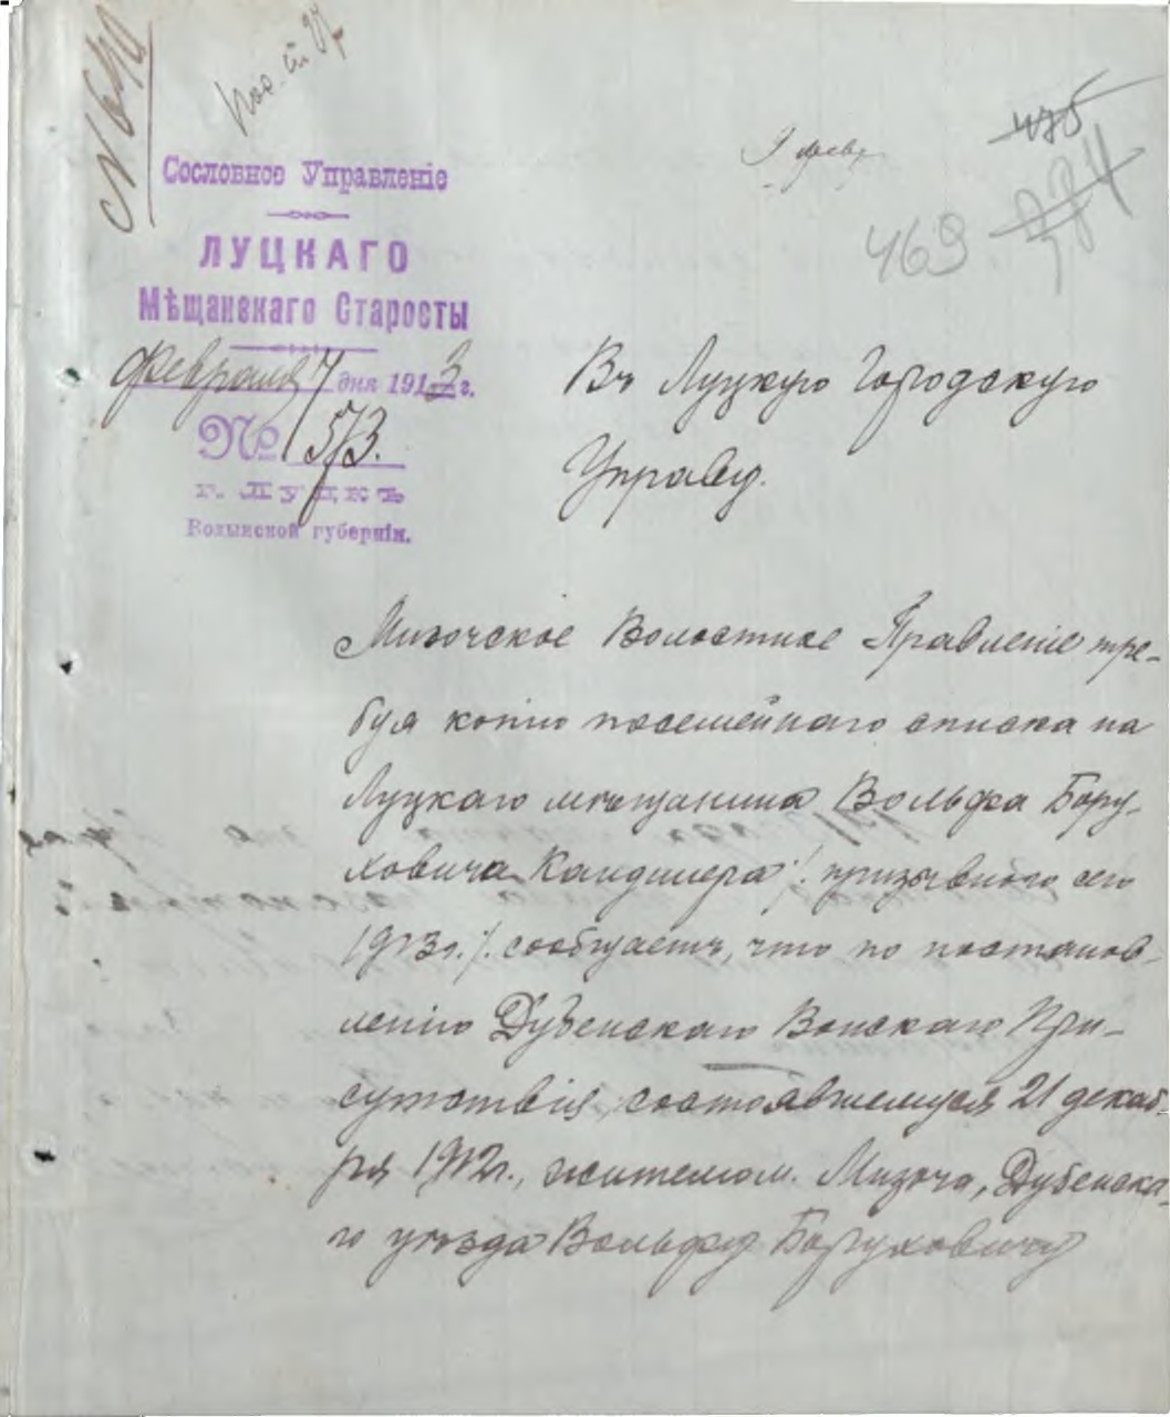 № 640
9 февр
475
469
Сословное Управленіе
ЛУЦКАГО
Мѣщанскаго Старосты
Февраля 7 дня 1913 г.
№ 573.
г. Луцкъ
Волынской губерніи.
Въ Луцкую Городскую
Управу.
Мизочское Волостное Правленіе тре-
буя копію посемейнаго списка на
Луцкаго мѣщанина Вольфа Бору-
ховича Кандшера /. призывного сего
1913 г. /. сообщаетъ, что по постанов-
ленію Дубенскаго Воинскаго При-
сутствія, состоявшемуся 21 декаб-
ря 1912 г., жителю м. Мизоча, Дубенска-
го уѣзда Вольфу Боруховичу